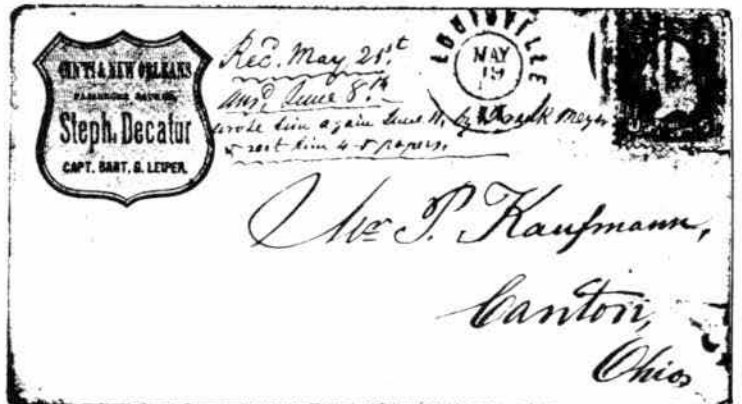 CIN'TI & NEW ORLEANS
PASSENGER
Steph. Decatur
CAPT. BART. G. LEIPER.
Rec. May 21st.
Ansd. June 8th
wrote him again June 11, by Frank Meyer
& sent him 4-5 papers.
LOUISVILLE
MAY
19
KY.
Mr P. Kaufmann,
Canton,
Ohio